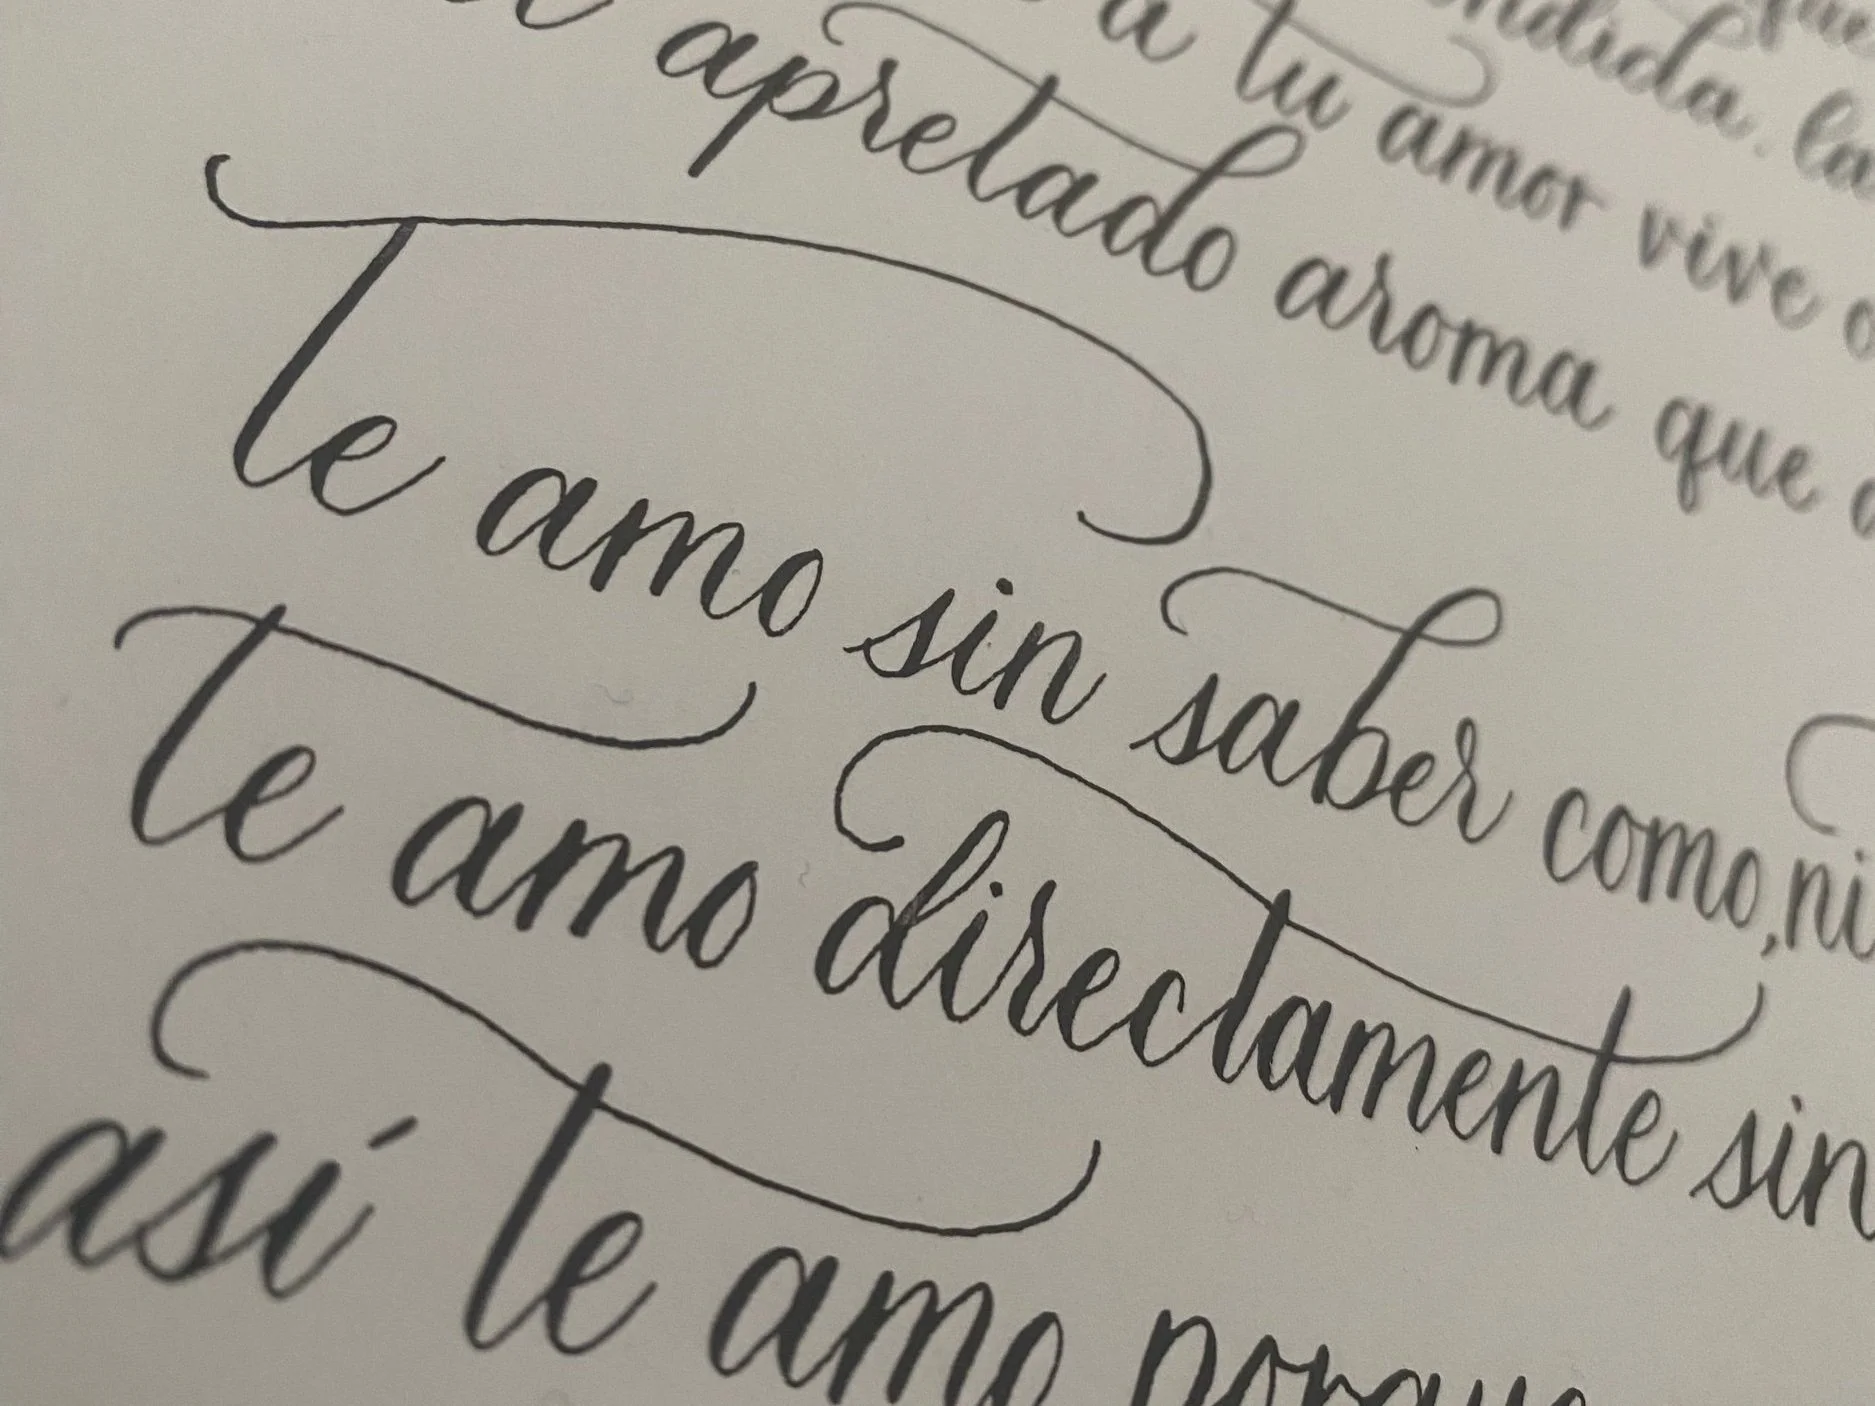 a tu amor vive
apretado aroma que
Te amo sin saber como, ni
te amo directamente sin
así te amo porque